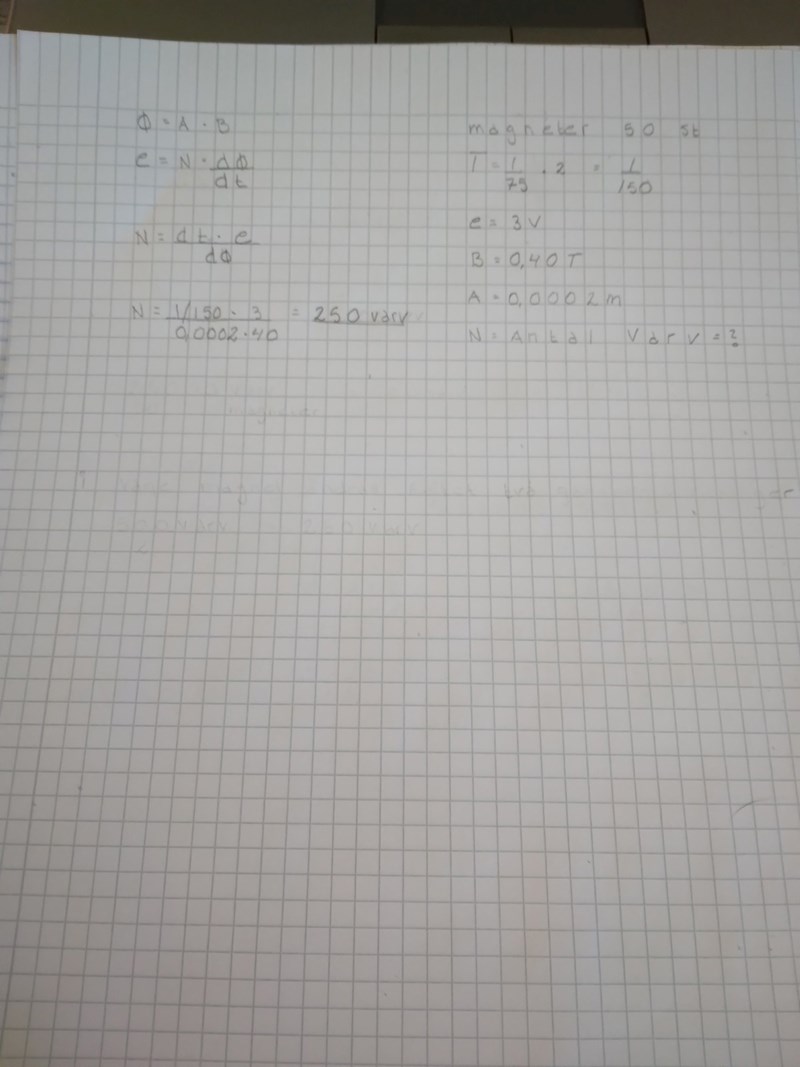 Φ = A · B
e = N · dΦ/dt
N = dt · e/dΦ
N = 1/150 · 3/0,0002 · 40 = 250 varv
magneter 50 st
T = 1/75 · 2 = 1/150
e = 3V
B = 0,40T
A = 0,0002m
N = Antal Varv = ?